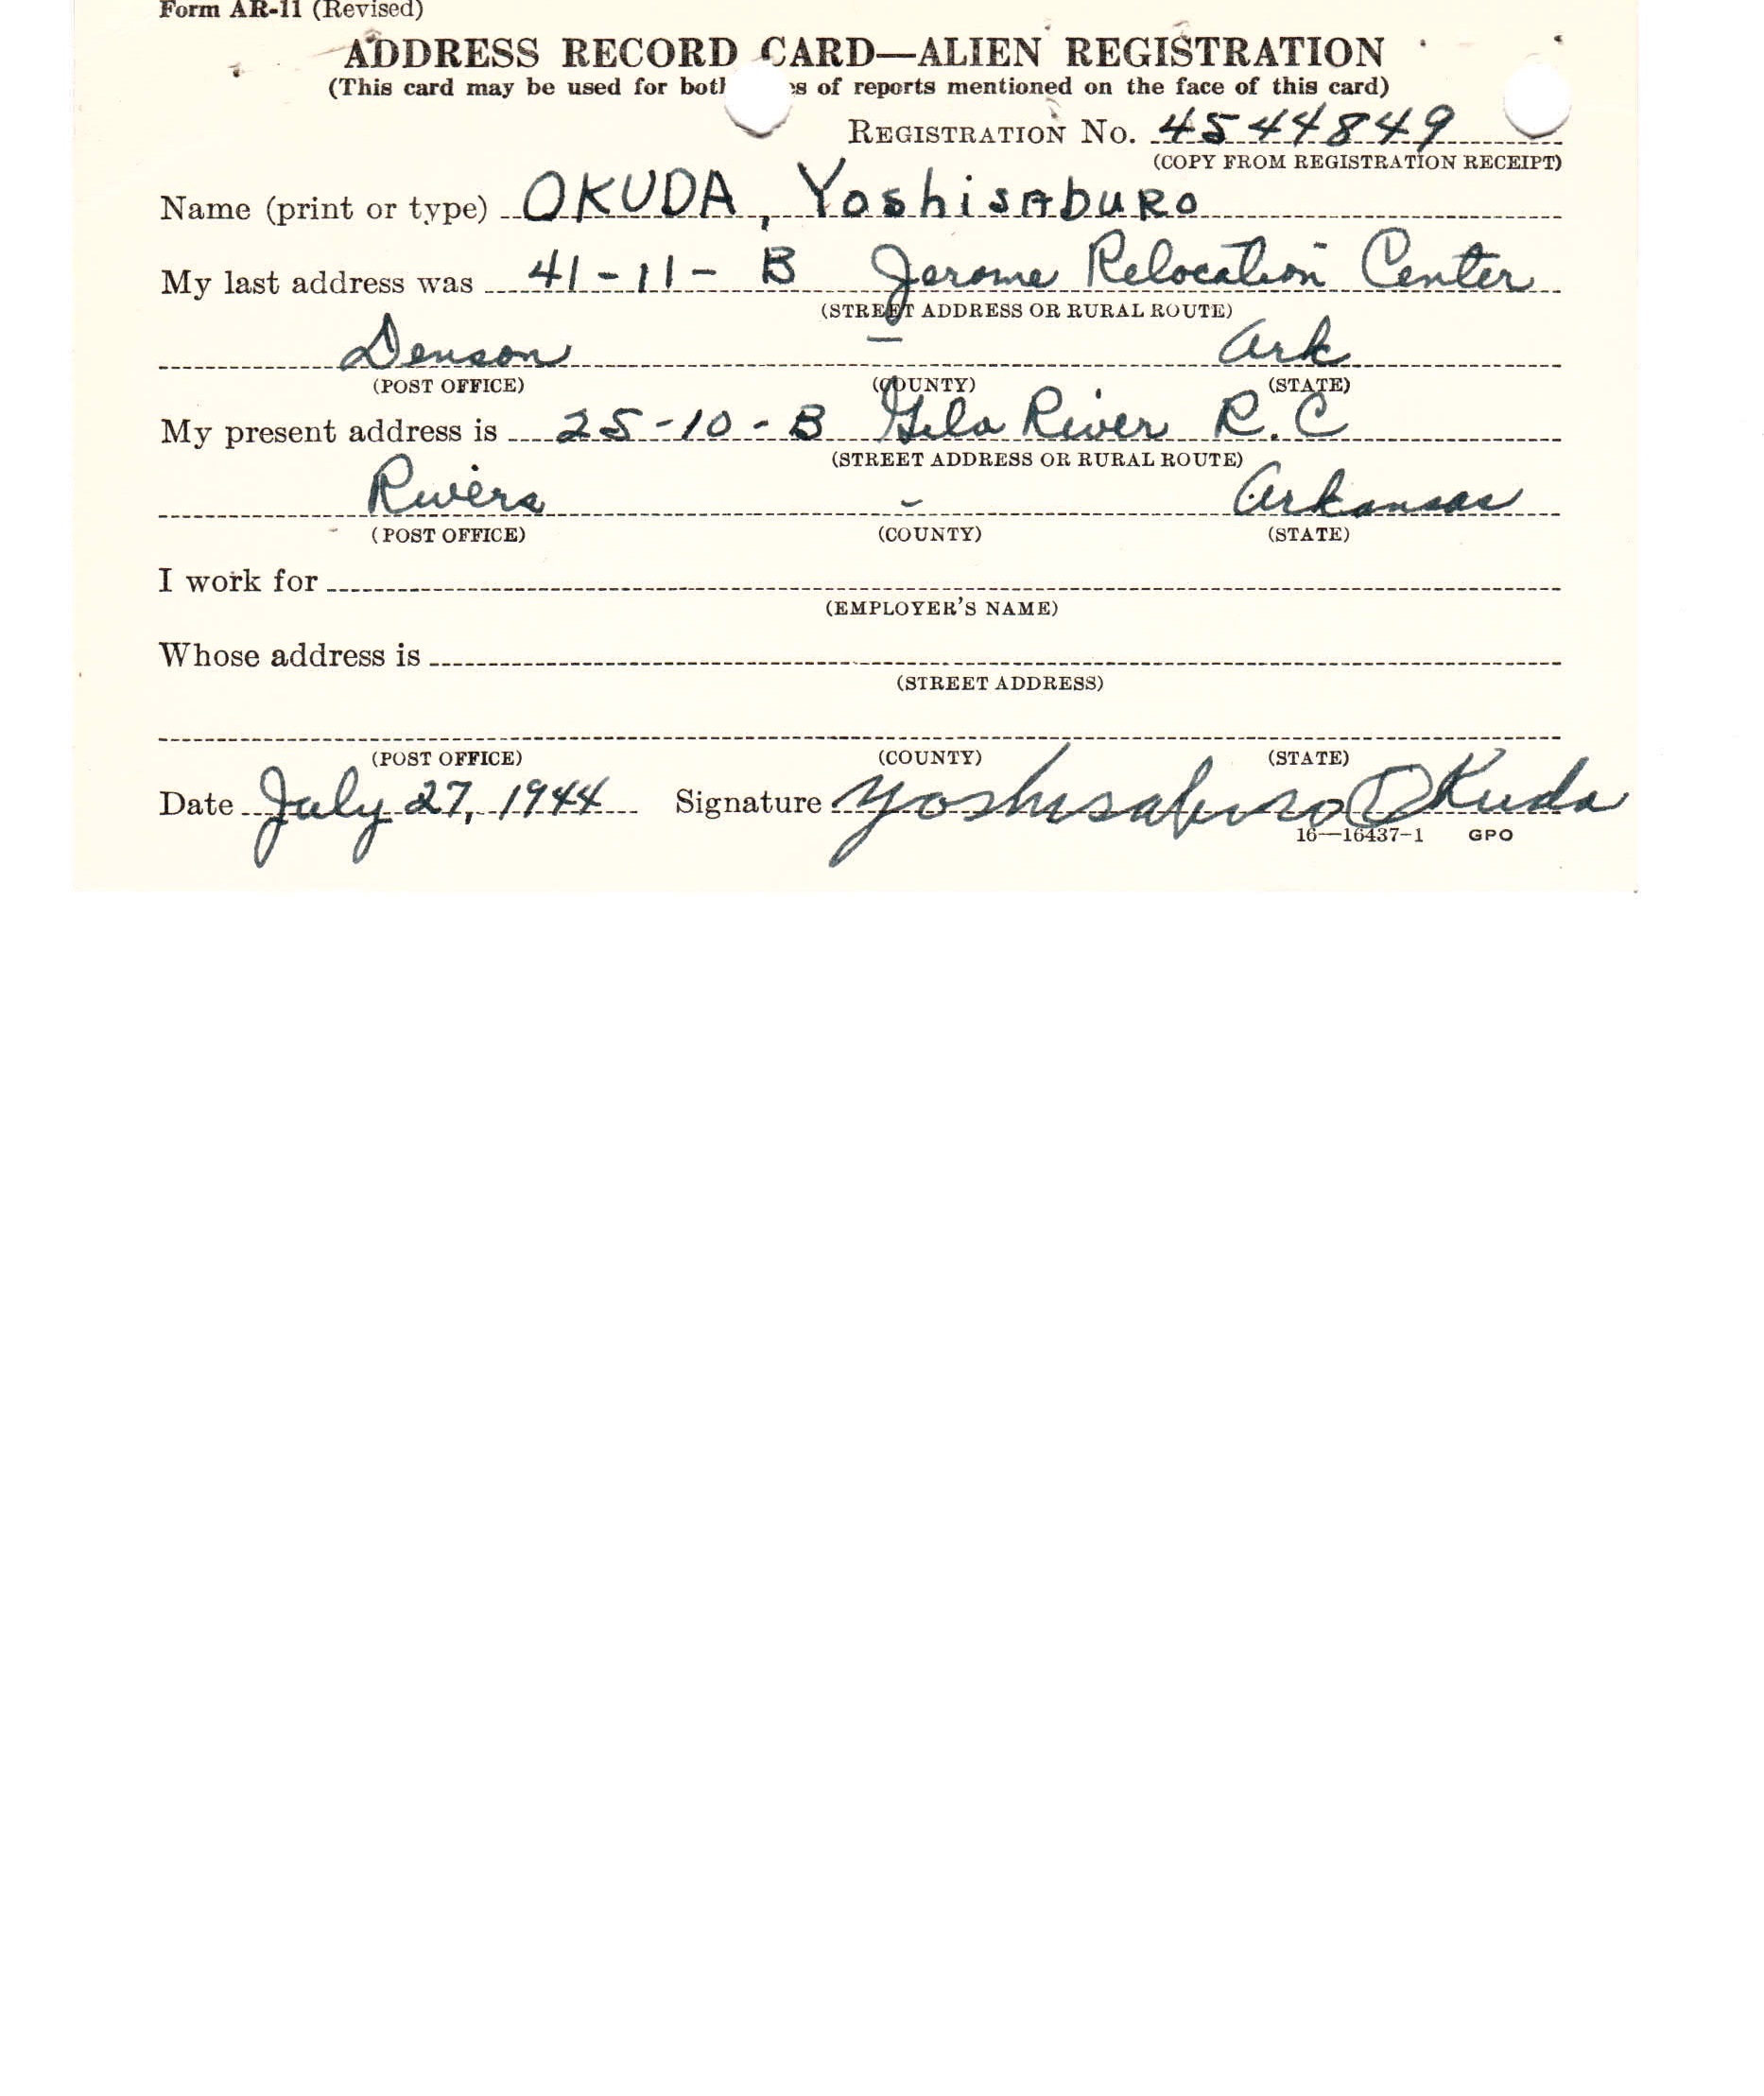 Form AR-11 (Revised)
ADDRESS RECORD CARD—ALIEN REGISTRATION
(This card may be used for both es of reports mentioned on the face of this card)
REGISTRATION No. 4544849
(COPY FROM REGISTRATION RECEIPT)
Name (print or type) OKUDA, Yoshisaburo
My last address was 41-11-B Jerome Relocation Center
(STREET ADDRESS OR RURAL ROUTE)
Denson — Ark
(POST OFFICE) (COUNTY) (STATE)
My present address is 25-10-B Gila River R.C
(STREET ADDRESS OR RURAL ROUTE)
Rivers - Arkansas
(POST OFFICE) (COUNTY) (STATE)
I work for
(EMPLOYER'S NAME)
Whose address is
(STREET ADDRESS)
(POST OFFICE) (COUNTY) (STATE)
Date July 27, 1944 Signature Yoshisaburo Okuda
16—16437-1 GPO